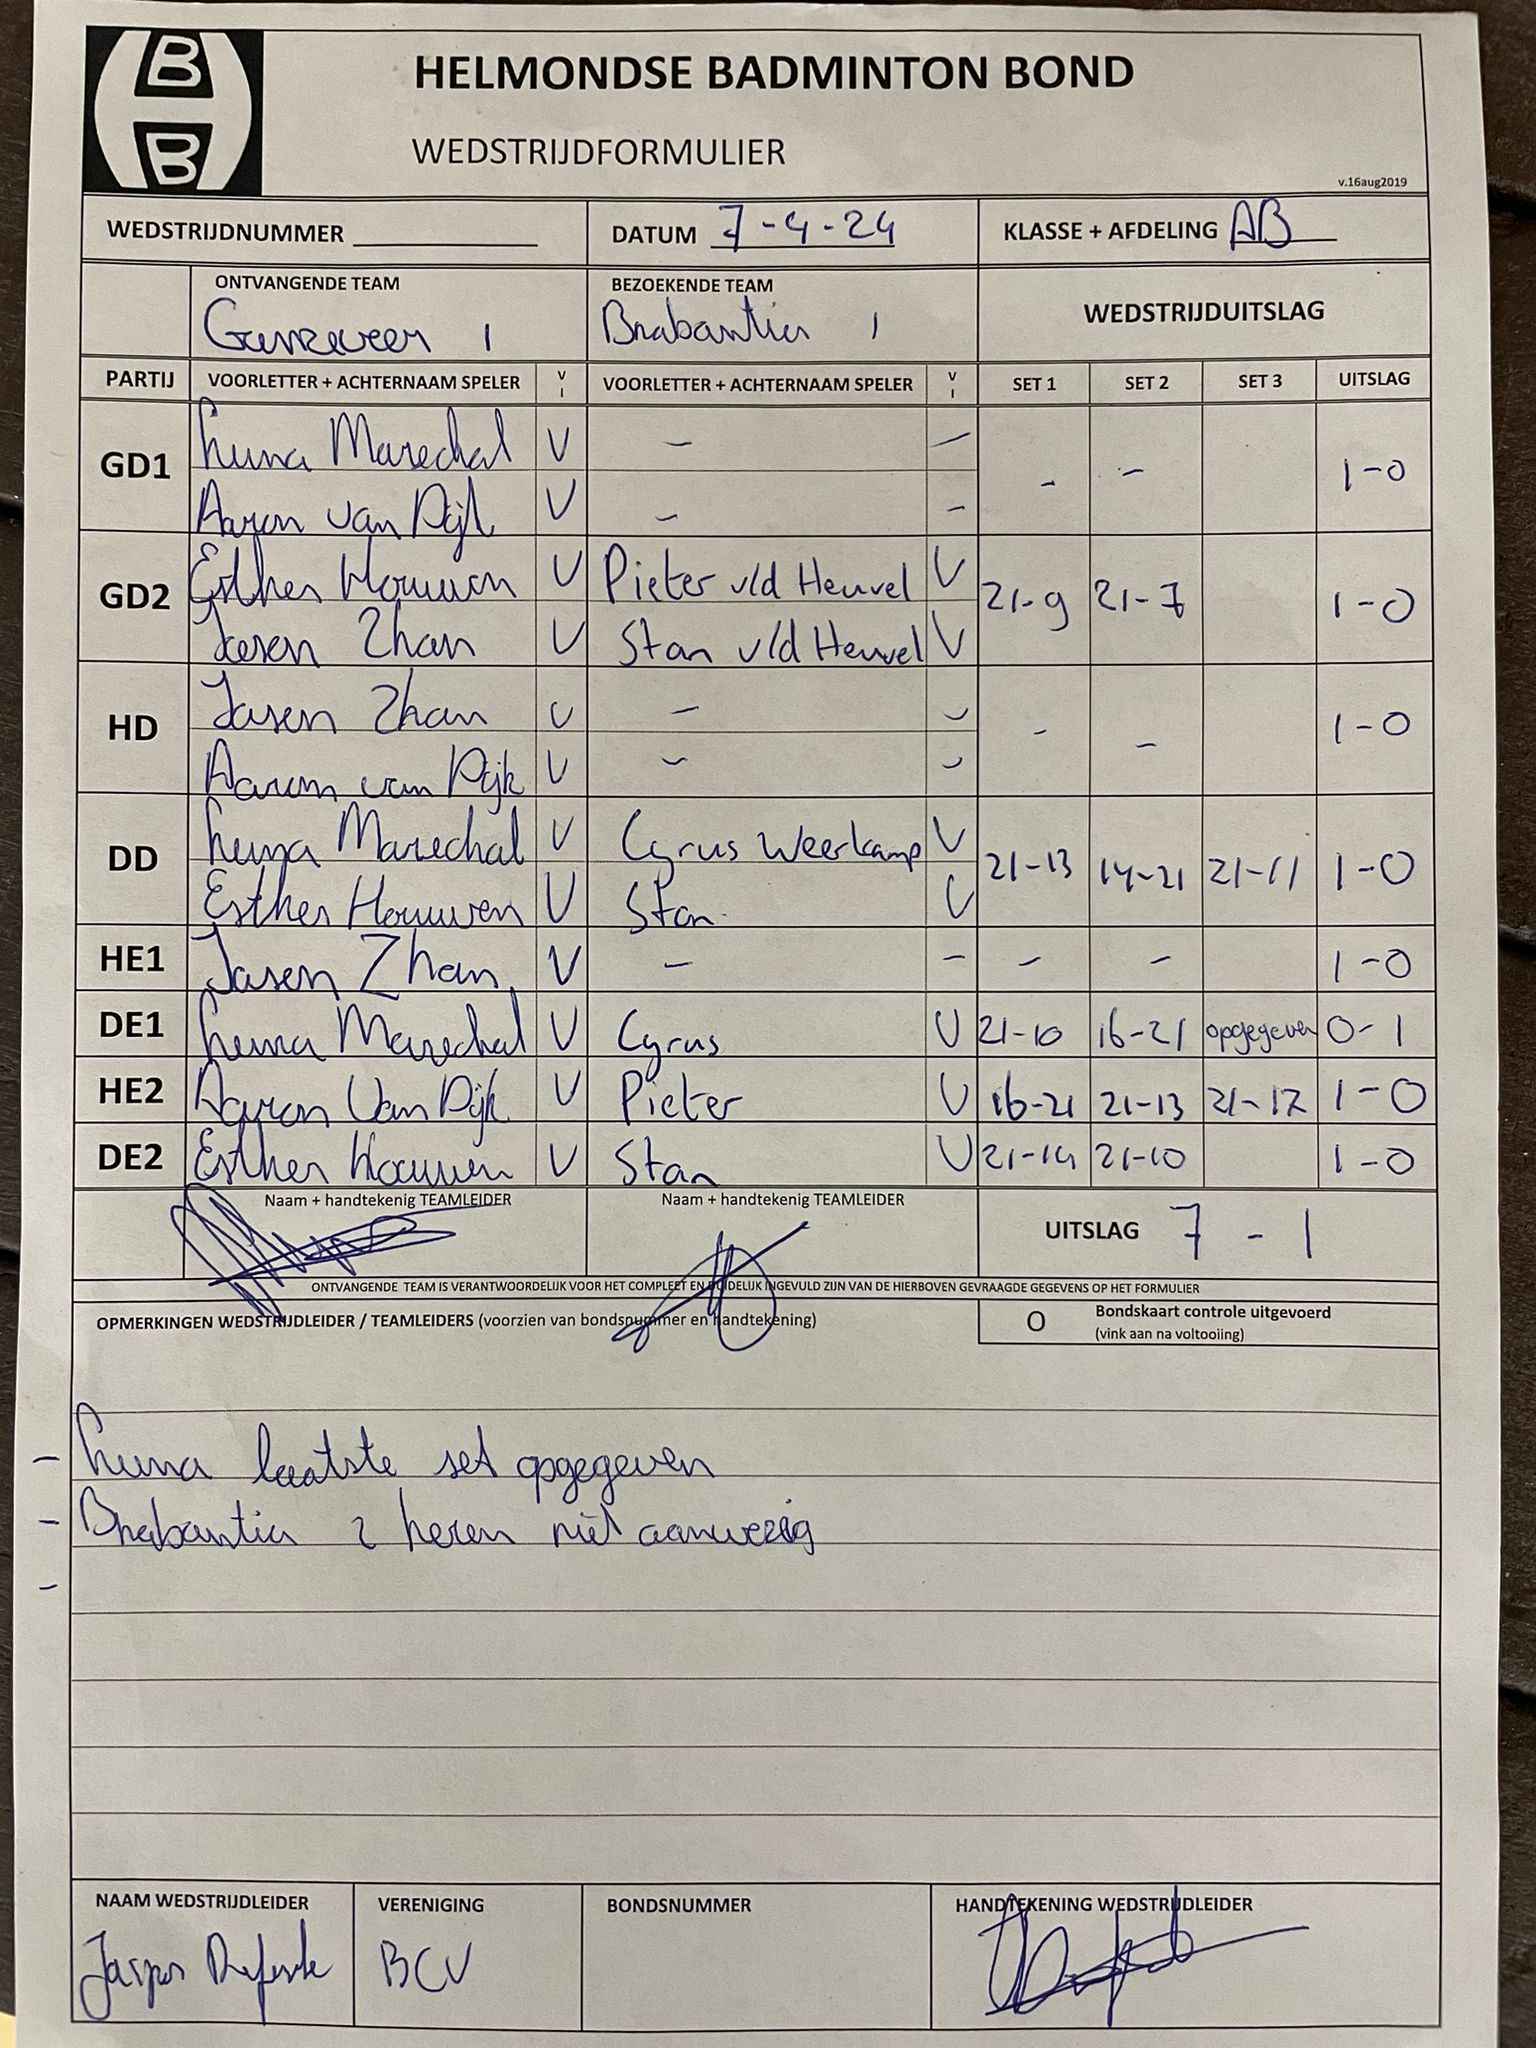 B
B
HELMONDSE BADMINTON BOND
WEDSTRIJDFORMULIER
v.16aug2019
WEDSTRIJDNUMMER DATUM 7-4-24 KLASSE + AFDELING AB
ONTVANGENDE TEAM BEZOEKENDE TEAM WEDSTRIJDUITSLAG
1 Brabantia 1
PARTIJ VOORLETTER + ACHTERNAAM SPELER V I VOORLETTER + ACHTERNAAM SPELER V I SET 1 SET 2 SET 3 UITSLAG
GD1 Luna Marechal V - - - - 1-0
Aaron van Dijk V - -
GD2 Esther Houwen V Pieter v/d Heuvel V 21-9 21-7 1-0
Jasen Zhan V Stan v/d Heuvel V
HD Jasen Zhan V - - - - 1-0
Aaron van Dijk V - -
DD Luna Marechal V Cyrus Weerkamp V 21-13 14-21 21-11 1-0
Esther Houwen V Stan V
HE1 Jasen Zhan V - - - - 1-0
DE1 Luna Marechal V Cyrus V 21-10 16-21 opgegeven 0-1
HE2 Aaron Van Dijk V Pieter V 16-21 21-13 21-17 1-0
DE2 Esther Houwen V Stan V 21-14 21-10 1-0
Naam + handtekenig TEAMLEIDER Naam + handtekenig TEAMLEIDER UITSLAG 7 - 1
ONTVANGENDE TEAM IS VERANTWOORDELIJK VOOR HET COMPLEET EN DUIDELIJK INGEVULD ZIJN VAN DE HIERBOVEN GEVRAAGDE GEGEVENS OP HET FORMULIER
OPMERKINGEN WEDSTRIJDLEIDER / TEAMLEIDERS (voorzien van bondsnummer en handtekening) O Bondskaart controle uitgevoerd
(vink aan na voltooiing)
- Luna laatste set opgegeven
- Brabantia 2 heren niet aanwezig
-
NAAM WEDSTRIJDLEIDER VERENIGING BONDSNUMMER HANDTEKENING WEDSTRIJDLEIDER
BCV